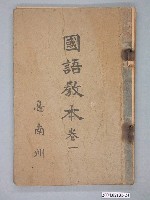 國語教本卷一
呂南州